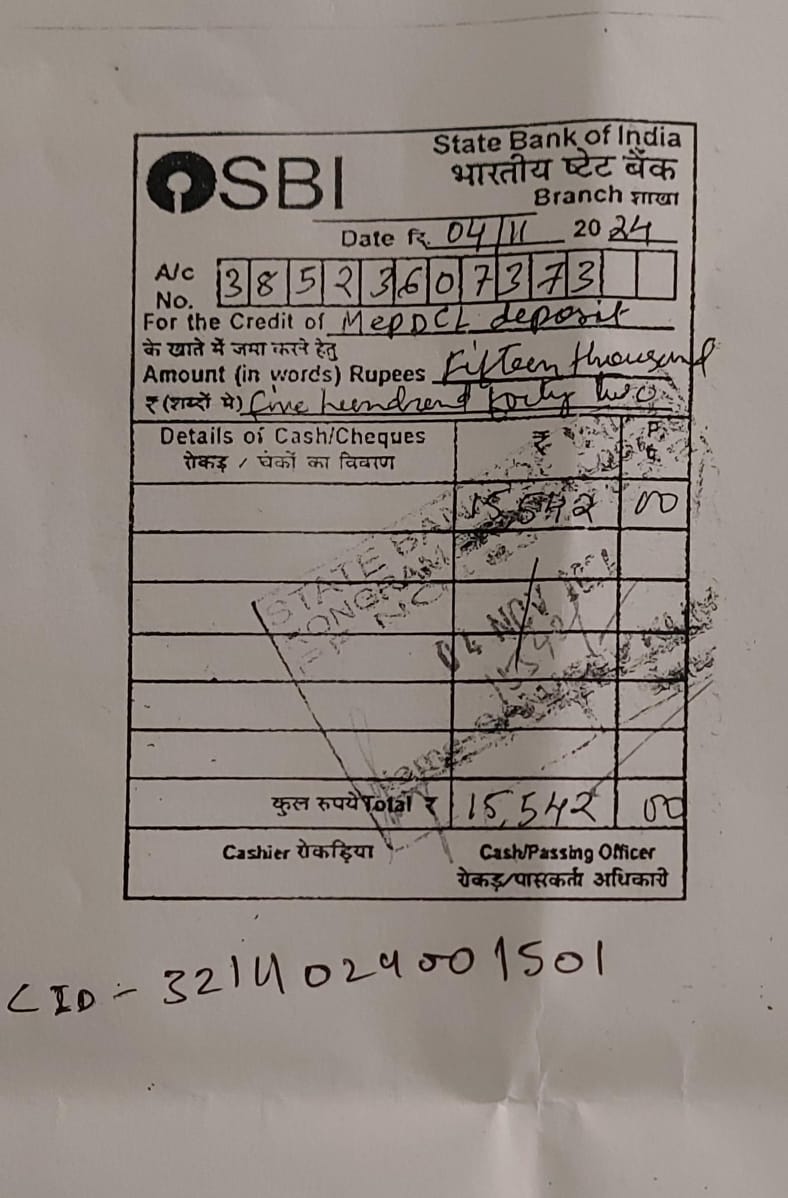 SBI
State Bank of India
भारतीय ष्टेट बैंक
Branch शाखा
Date दि. 04/11 2024
A/c No. 38523607373
For the Credit of MePDCL deposit
के खाते में जमा करने हेतु
Amount (in words) Rupees Fifteen thousand
₹ (शब्दों मे) five hundrend forty two
Details of Cash/Cheques ₹ P
रोकड़ / चेकों का विवरण पै
15,542 00
STATE BAN
TONGRAM
04 NOV
15542
Name
कुल रुपये Total ₹ 15,542 00
Cashier रोकड़िया Cash/Passing Officer
रोकड़/पासकर्ता अधिकारी
CID - 3214024001501